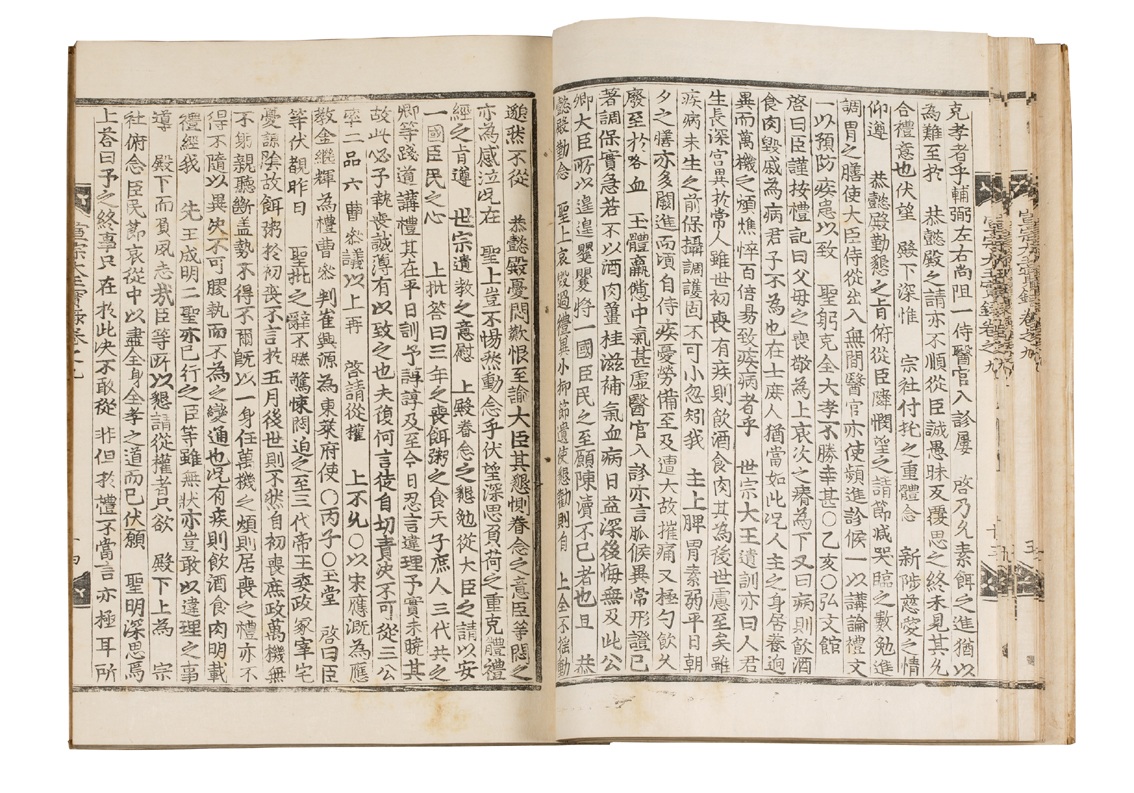 克孝者乎輔弼左右尚阻一侍醫官入診屢 啓乃允素餌之進猶以
為難至於 恭懿殿之請亦不順從臣誠愚昧反覆思之終未見其允
合禮意也伏望 殿下深惟 宗社付托之重體念 新陟慈愛之情
仰遵 恭懿殿勤懇之旨俯從臣隣憫望之請節減哭臨之數勉進
調胃之膳使大臣侍從出入無間醫官亦使頻進診候一以講論禮文
一以預防疾患以致 聖躬克全大孝不勝幸甚○乙亥○弘文館
啓曰臣謹按禮記曰父母之喪敬為上哀次之瘠為下又曰病則飲酒
食肉毀戚為病君子不為也在士庶人猶當如此况人主之身居養逈
異而萬機之煩憔悴百倍易致疾病者乎 世宗大王遺訓亦曰人君
生長深宮異於常人雖世初喪有疾則飲酒食肉其為後世慮至矣雖
疾病未生之前保攝調護固不可小忽矧我 主上脾胃素弱平日朝
夕之膳亦多闕進而頃自侍疾憂勞備至及遭大故摧痛又極勺飲久
廢至於咯血 王體羸憊中氣甚虛醫官入診亦言脈候異常形證已
著調保實急若不以酒肉薑桂滋補氣血病日益深後悔無及此公
卿大臣所以遑遑 將一國臣民之至願陳瀆不已者也且 恭
懿殿勤念 聖上哀毀過禮異小抑節遺使懇勸則自 上全不搖動
宣宗大王實錄卷之九
邈然不從 恭懿殿憂悶歎恨至諭大臣其懇惻眷念之意臣等聞之
亦為感泣况在 聖上豈不惕然動念乎伏望深思負荷之重克體禮
經之旨遵 世宗遺教之意慰 上殿眷念之懇勉從大臣之請以安
一國臣民之心 上批答曰三年之喪餌粥之食天子庶人三代共之
卿等踐道講禮其在平日訓予諄諄及至今日忍言違理予實未曉其
故此必予執喪誠薄有以致之也夫復何言徒自切責决不可從三公
率二品六曹參議以上再 啓請從權 上不允○以宋應漑為應
教金繼輝為禮曹參判崔興源為東萊府使○丙子○玉堂 啓曰臣
等伏覩昨日 聖批之辭不勝驚悚悶迫之至三代帝王委政冢宰宅
憂諒陰故餌粥於初喪不言於五月後世則不然自初喪庶政萬機無
不躬親聽斷盖勢不得不爾旣以一身任萬機之煩則居喪之禮亦不
得不隨以異决不可膠執而不為之變通也况有疾則飲酒食肉明載
禮經我 先王成明二聖亦已行之臣等雖無狀亦豈敢以違理之事
導 殿下而負夙志哉臣等所以懇請從權者只欲 殿下上為 宗
社俯念臣民節哀從中以盡全身全孝之道而已伏願 聖明深思焉
上答曰予之終事只在於此决不敢從非但於禮不當言亦極耳所
宣宗大王實錄卷之九
十四